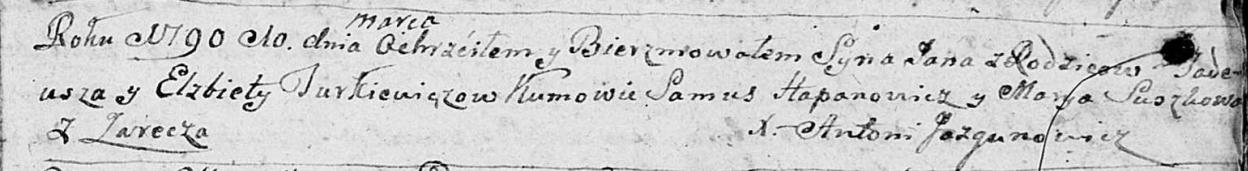 marca
Roku 1790 10. dnia Ochrzciłem y Bierzmowałem Syna Jana z Rodzicow Tade-
usza y Elzbiety Turkiewiczow Kumowie Samus Hapanowicz y Marya Suszkowa
z Zarecza X. Antoni Jazgunowicz